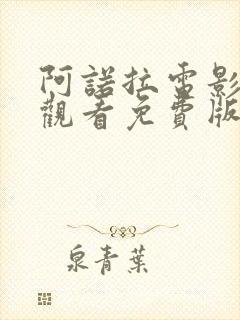 阿諾拉電影
觀看免費版
泉青葉